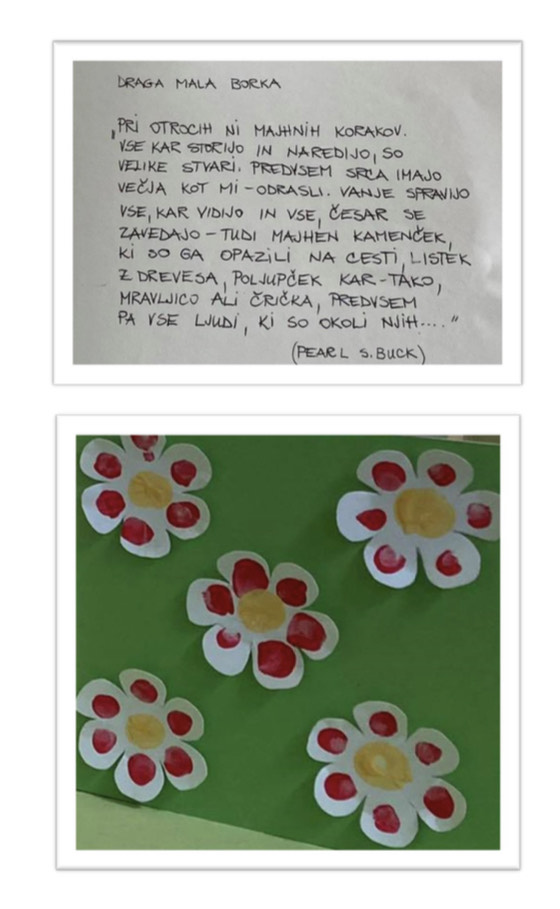 DRAGA MALA BORKA
"PRI OTROCIH NI MAJHNIH KORAKOV.
VSE KAR STORIJO IN NAREDIJO, SO
VELIKE STVARI. PREDVSEM SRCA IMAJO
VEČJA KOT MI - ODRASLI. VANJE SPRAVIJO
VSE, KAR VIDIJO IN VSE, ČESAR SE
ZAVEDAJO - TUDI MAJHEN KAMENČEK,
KI SO GA OPAZILI NA CESTI, LISTEK
Z DREVESA, POLJUPČEK KAR-TAKO,
MRAVLJICO ALI ČRIČKA, PREDVSEM
PA VSE LJUDI, KI SO OKOLI NJIH...."
(PEARL S. BUCK)